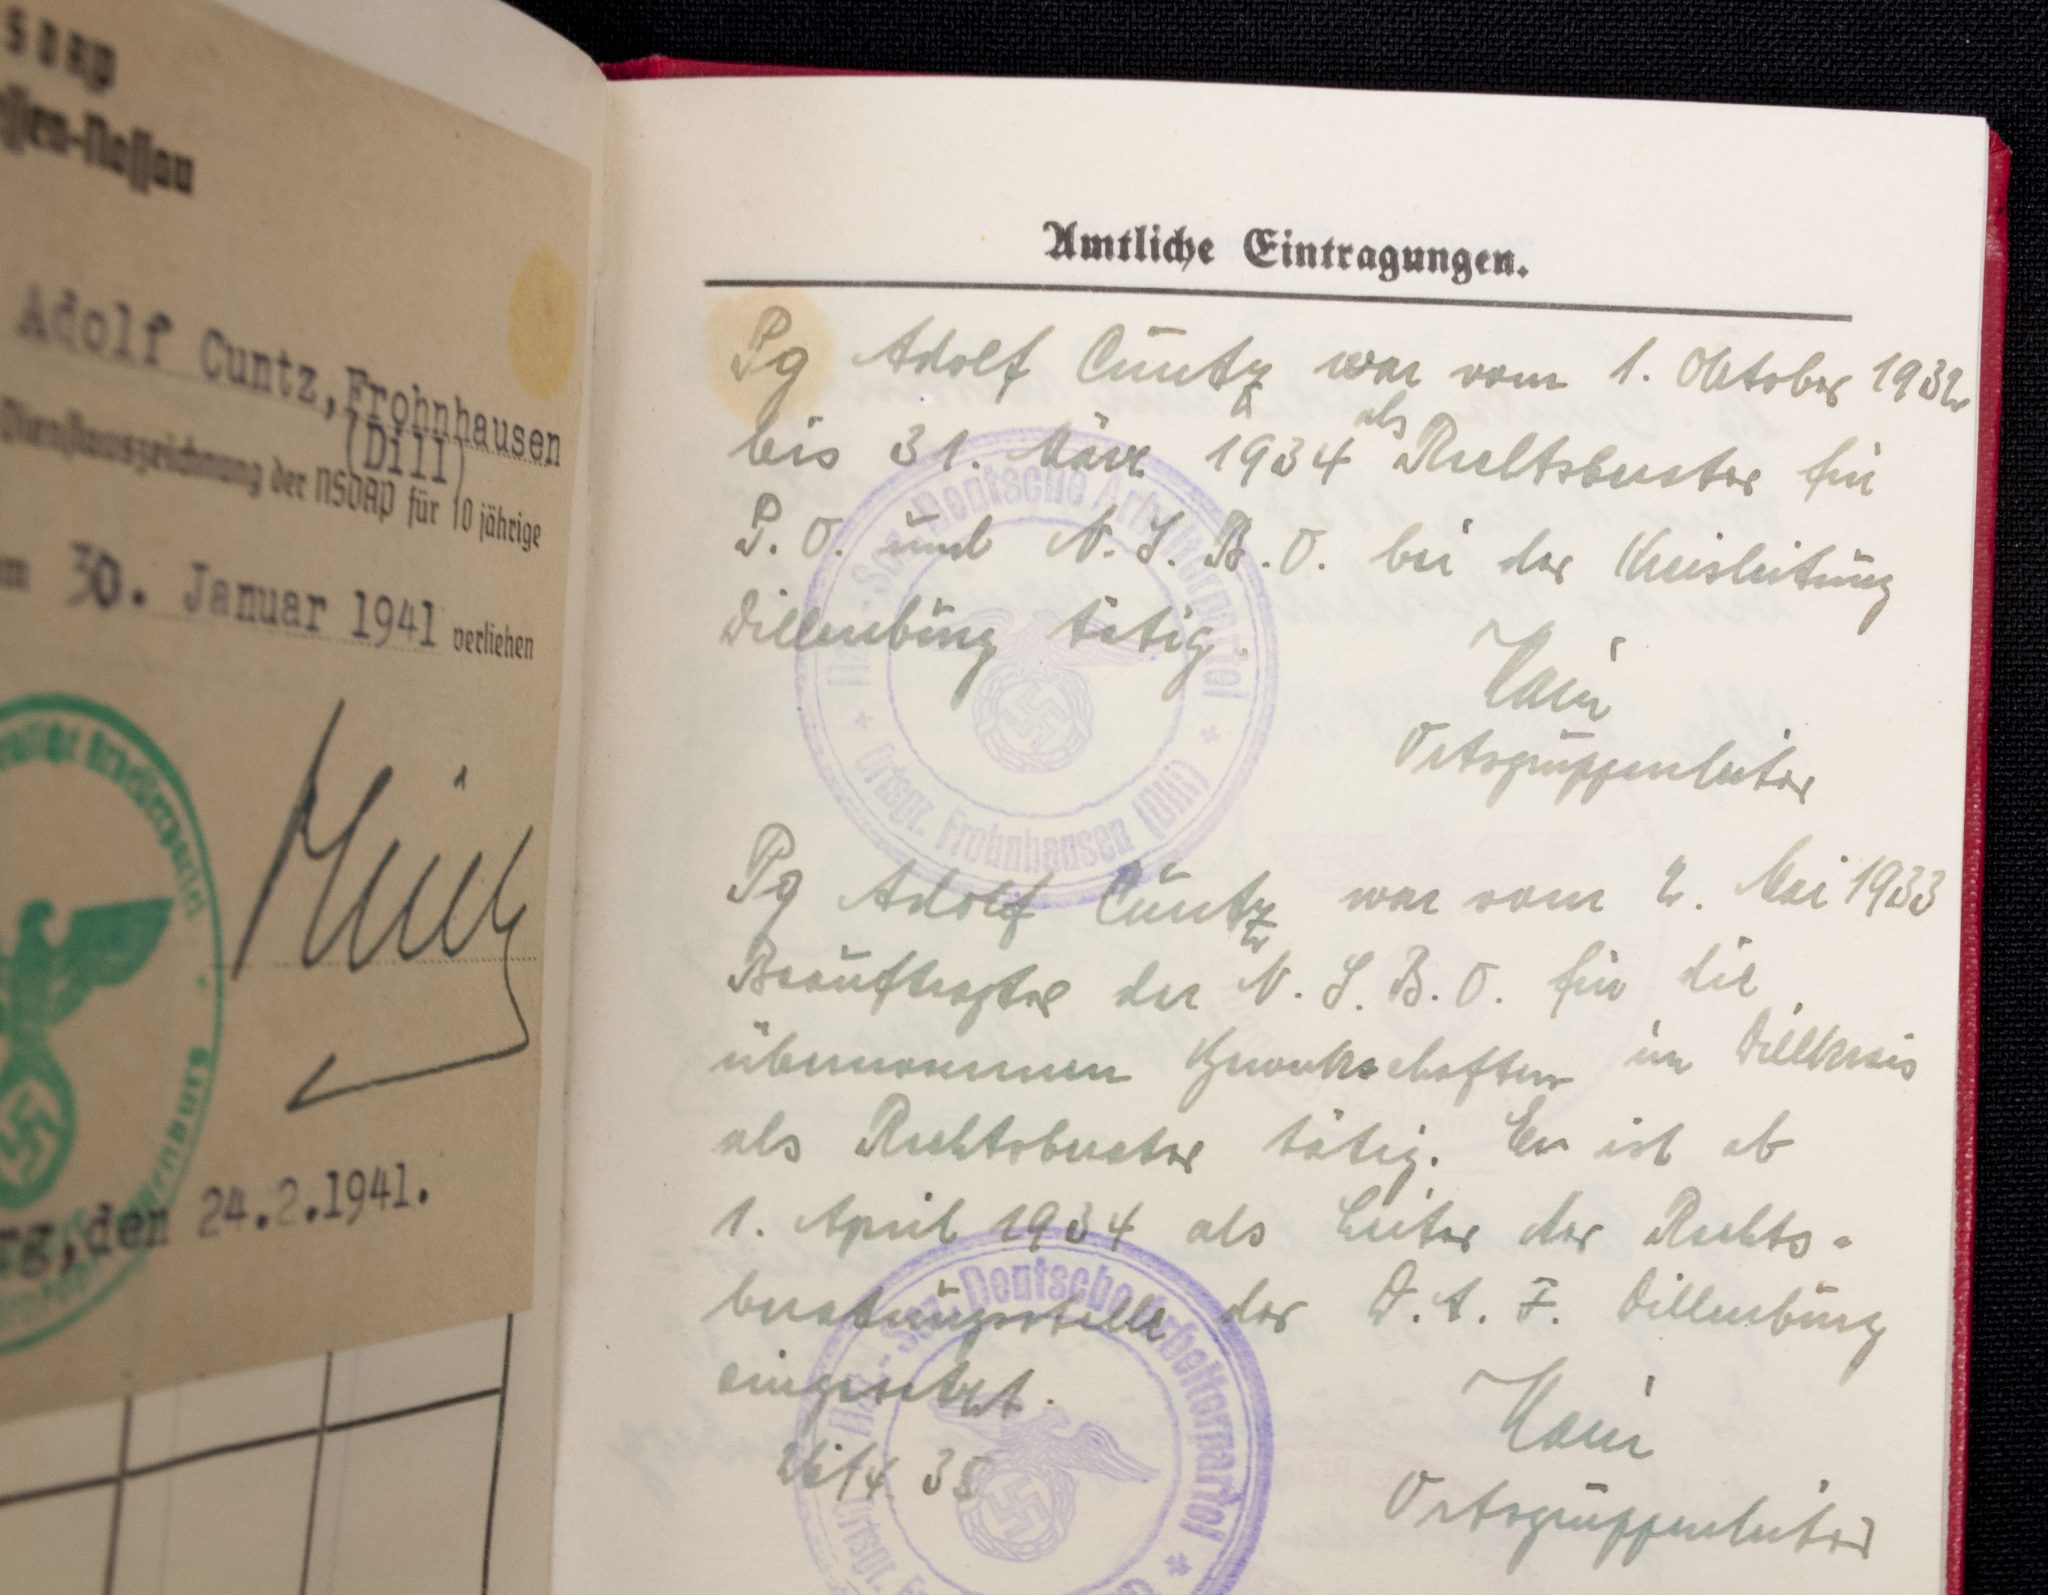 NSDAP
ssen-Nassau
Adolf Cuntz, Frohnhausen
(Dill)
Dienstauszeichnung der NSDAP für 10 jährige
30. Januar 1941 verliehen
rg, den 24.2.1941.
Amtliche Eintragungen.
Pg Adolf Cuntz war vom 1. Oktober 1932
bis 31. März 1934 als Rechtsberater für
P. O. und N. S. B. O. bei der Kreisleitung
Dillenburg tätig.
Ortsgruppenleiter
Nat.-Soz. Deutsche Arbeiterpartei
* Ortsgr. Frohnhausen (Dill) *
Pg Adolf Cuntz war vom 2. Mai 1933
Beauftragter der N. S. B. O. für die
übernommenen Gewerkschaften im Dillkreis
als Rechtsberater tätig. Er ist ab
1. April 1934 als Leiter der Rechts-
beratungsstelle der D. A. F. Dillenburg
eingesetzt.
35
Ortsgruppenleiter
Nat.-Soz. Deutsche Arbeiterpartei *
Ortsgr. F